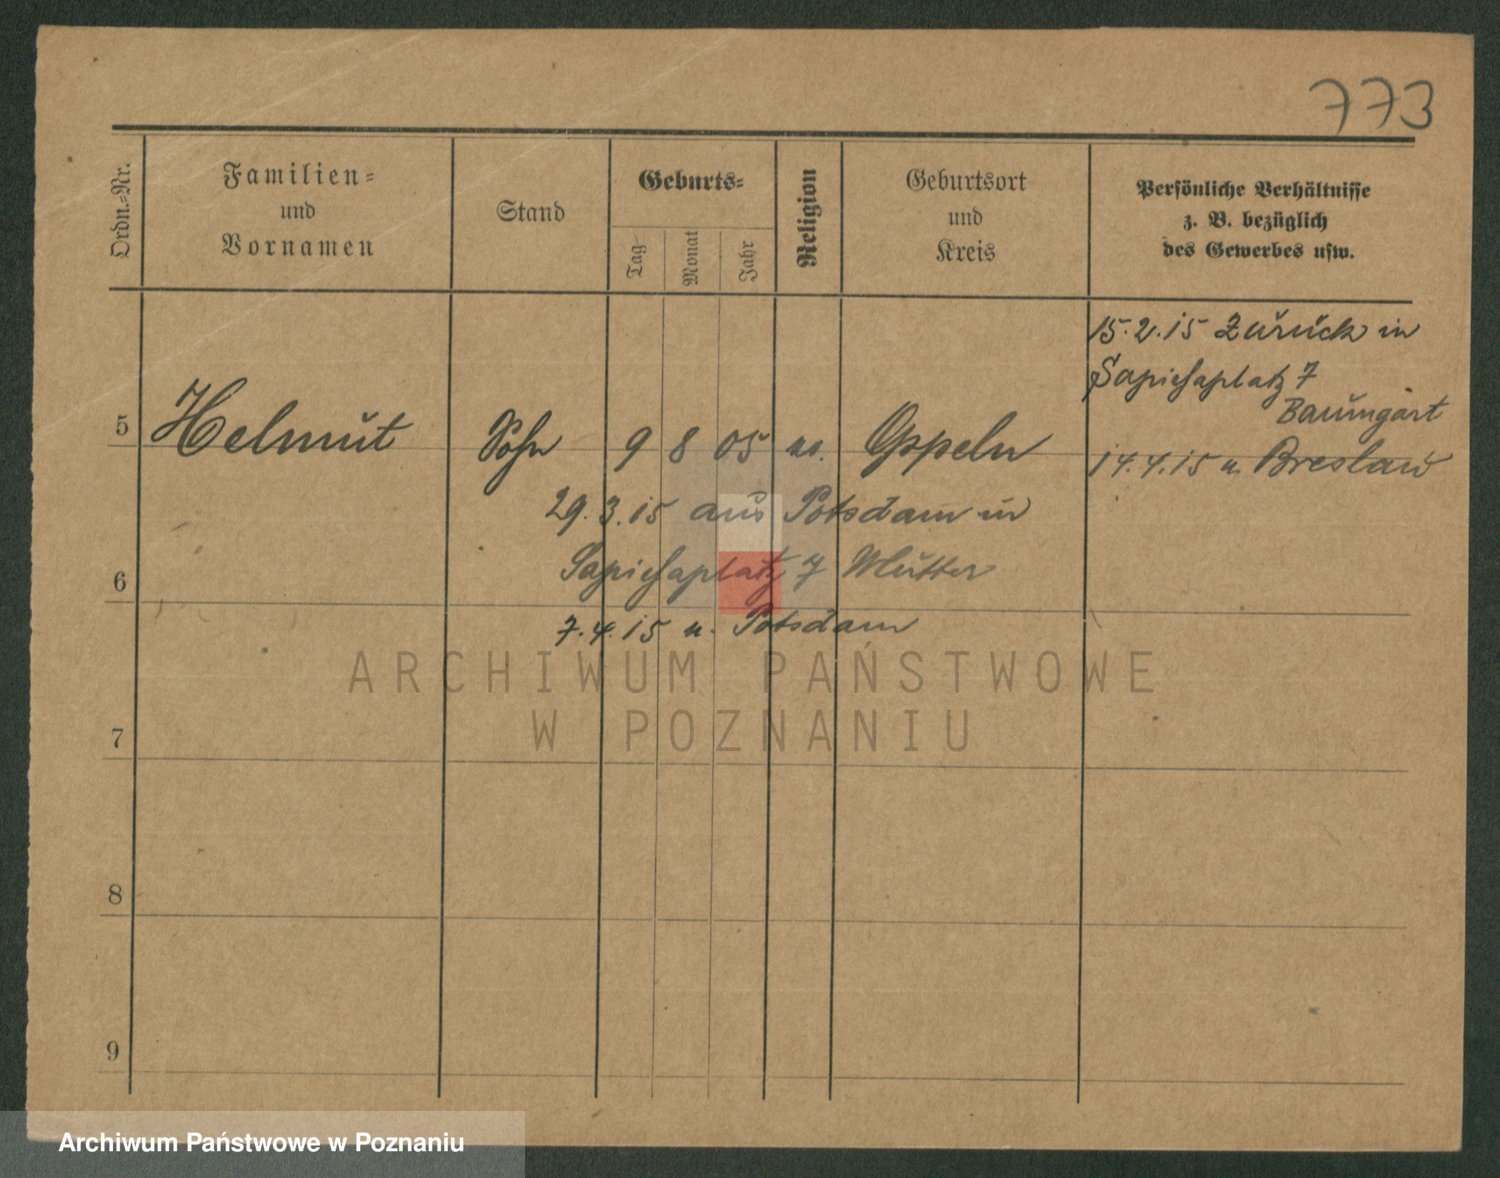 773
Ordn.-Nr.
Familien-
und
Vornamen
Stand
Geburts-
Tag
Monat
Jahr
Religion
Geburtsort
und
Kreis
Persönliche Verhältnisse
z. B. bezüglich
des Gewerbes usw.
15.2.15 Zurück in
Sapiehaplatz 7
Baumgart
5 Helmut Sohn 9 8 05 Oppeln 14.4.15 n. Breslau
29.3.15 aus Potsdam in
6 Sapiehaplatz 7 Mutter
7.4.15 n. Potsdam
7
8
9
ARCHIWUM PAŃSTWOWE
W POZNANIU
Archiwum Państwowe w Poznaniu